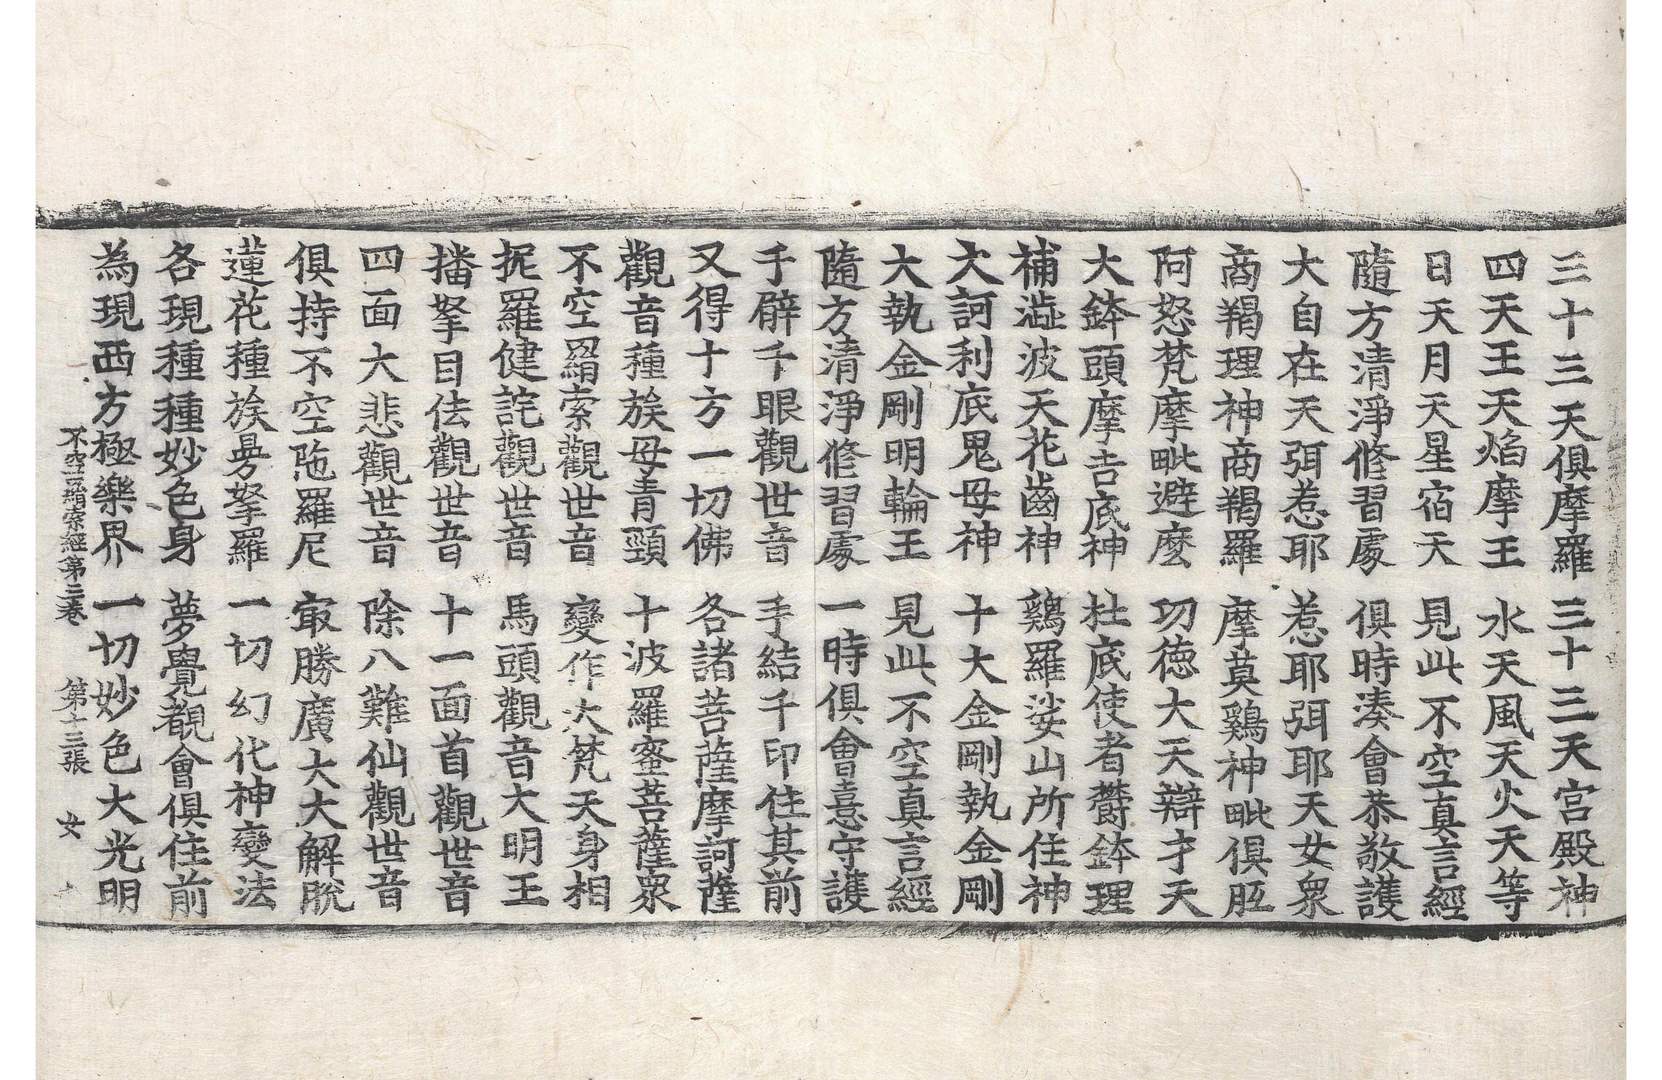 三十三天俱摩羅 三十三天宮殿神
四天王天焰摩王 水天風天火天等
日天月天星宿天 見此不空真言經
隨方清淨修習處 俱時湊會恭敬護
大自在天弭惹耶 惹耶弭耶天女眾
商羯理神商羯羅 摩莫鷄神毗俱胝
阿怒梵摩毗避麼 功德大天辯才天
大鉢頭摩吉底神 杜底使者欝鉢理
補澁波天花齒神 鷄羅娑山所住神
大訶利底鬼母神 十大金剛執金剛
大執金剛明輪王 見此不空真言經
隨方清淨修習處 一時俱會憙守護
千臂千眼觀世音 手結千印住其前
又得十方一切佛 各諸菩薩摩訶薩
觀音種族母青頸 十波羅蜜菩薩眾
不空羂索觀世音 變作大梵天身相
抳羅健詫觀世音 馬頭觀音大明王
播拏目佉觀世音 十一面首觀世音
四面大悲觀世音 除八難仙觀世音
俱持不空陁羅尼 㝡勝廣大大解脫
蓮花種族㝵拏羅 一切幻化神變法
各現種種妙色身 夢覺覩會俱住前
為現西方極樂界 一切妙色大光明
不空羂索經第三卷 第十三張 女